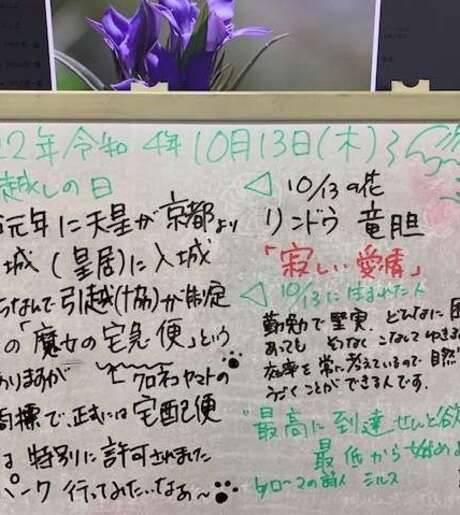 22年令和4年10月13日(木)
越しの日
元年に天皇が京都より
城(皇居)に入城
なんで引越(協)が制定
の「魔女の宅急便」という
ありますが
クロネコヤマトの
商標で、正式には宅配便
は特別に許可されました
パーク 行ってみたいなぁ〜
◁ 10/13の花
リンドウ 竜胆
「寂しい愛情」
◁ 10/13に生まれた人
勤勉で堅実. どんなに困
あっても そつなく こなしてゆきま
を常に考えているので 自然
うごくことができるんです.
最高に到達せんと欲
最低から始めよ
の詩人 シルス